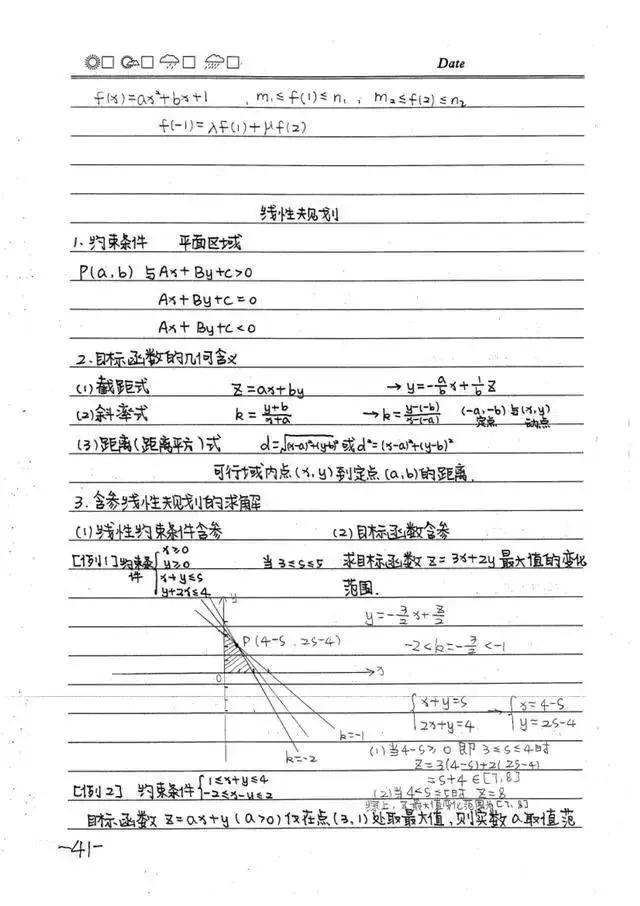 Date
f(x)=ax²+bx+1 , m₁≤f(1)≤n₁, m₂≤f(2)≤n₂
f(-1)=λf(1)+μf(2)
线性规划
1. 约束条件 平面区域
P(a,b) 与Ax+By+c>0
Ax+By+c=0
Ax+By+c<0
2.目标函数的几何含义
(1)截距式 Z=ax+by →y=-a/b x+1/b Z
(2)斜率式 k=(y+b)/(x+a) →k=(y-(-b))/(x-(-a)) (-a,-b)与(x,y)
定点 动点
(3)距离(距离平方)式 d=√((x-a)²+(y-b)²) 或d²=(x-a)²+(y-b)²
可行域内点(x,y)到定点(a,b)的距离.
3.含参线性规划的求解
(1)线性约束条件含参 (2)目标函数含参
[例1]约束条件{x≥0 当3≤s≤5 求目标函数z=3x+2y最大值的变化
y≥0
x+y≤s
y+2x≤4 范围.
y=-3/2x+z/2
y
P(4-s, 2s-4) -2<k=-3/2<-1
0 x
{x+y=s → {x=4-s
2x+y=4 y=2s-4
k=-1
k=-2
(1)当4-s≥0 即3≤s≤4时
z=3(4-s)+2(2s-4)
=s+4∈[7,8]
[例2] 约束条件{1≤x+y≤4
-2≤x-y≤2
(2)当4<s≤5时 z=8
综上,z最大值变化范围为[7,8]
目标函数z=ax+y(a>0)仅在点(3,1)处取最大值,则实数a取值范
-41-